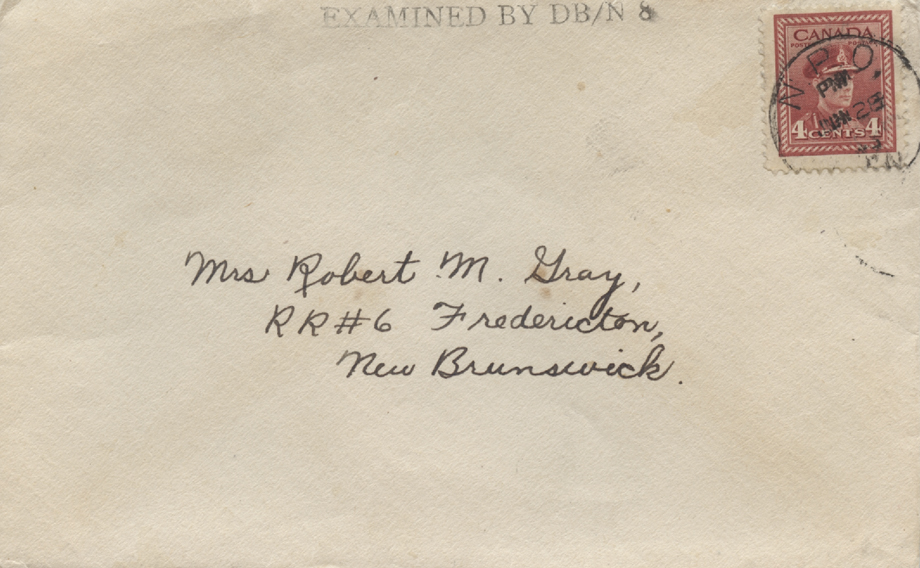 EXAMINED BY DB/N 8
CANADA
N.P.O.
PM
28
4 CENTS 4
Mrs Robert M. Gray,
RR#6 Fredericton,
New Brunswick.